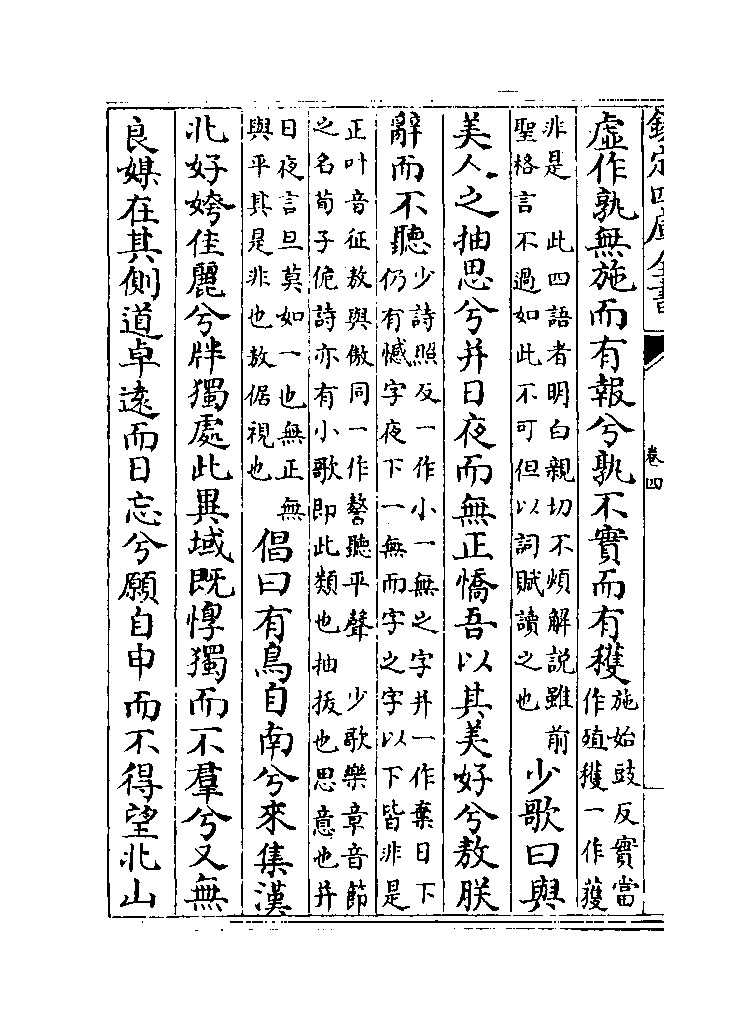 欽定四庫全書
卷四
虛作孰無施而有報兮孰不實而有穫施始豉反實當
作殖穫一作獲
非是 此四語者明白親切不煩解說雖前
聖格言不過如此不可但以詞賦讀之也
少歌曰與
美人之抽思兮并日夜而無正憍吾以其美好兮敖朕
辭而不聽少詩照反一作小一無之字并一作棄日下
仍有憾字夜下一無而字之字以下皆非是
正叶音征敖與傲同一作謷聽平聲 少歌樂章音節
之名荀子佹詩亦有小歌即此類也抽拔也思意也并
日夜言旦莫如一也無正無
與平其是非也敖倨視也
倡曰有鳥自南兮來集漢
北好姱佳麗兮牉獨處此異域既惸獨而不羣兮又無
良媒在其側道卓遠而日忘兮願自申而不得望北山